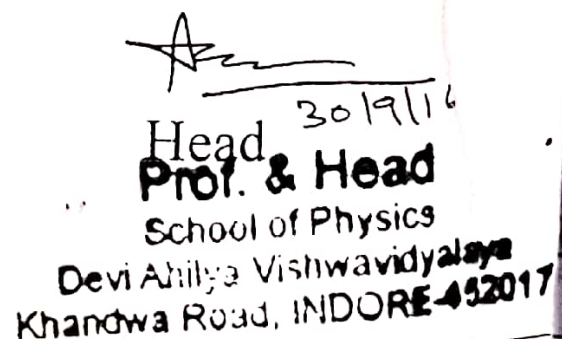 30/9/16
Head
Prof. & Head
School of Physics
Devi Ahilya Vishwavidyalaya
Khandwa Road, INDORE-452017